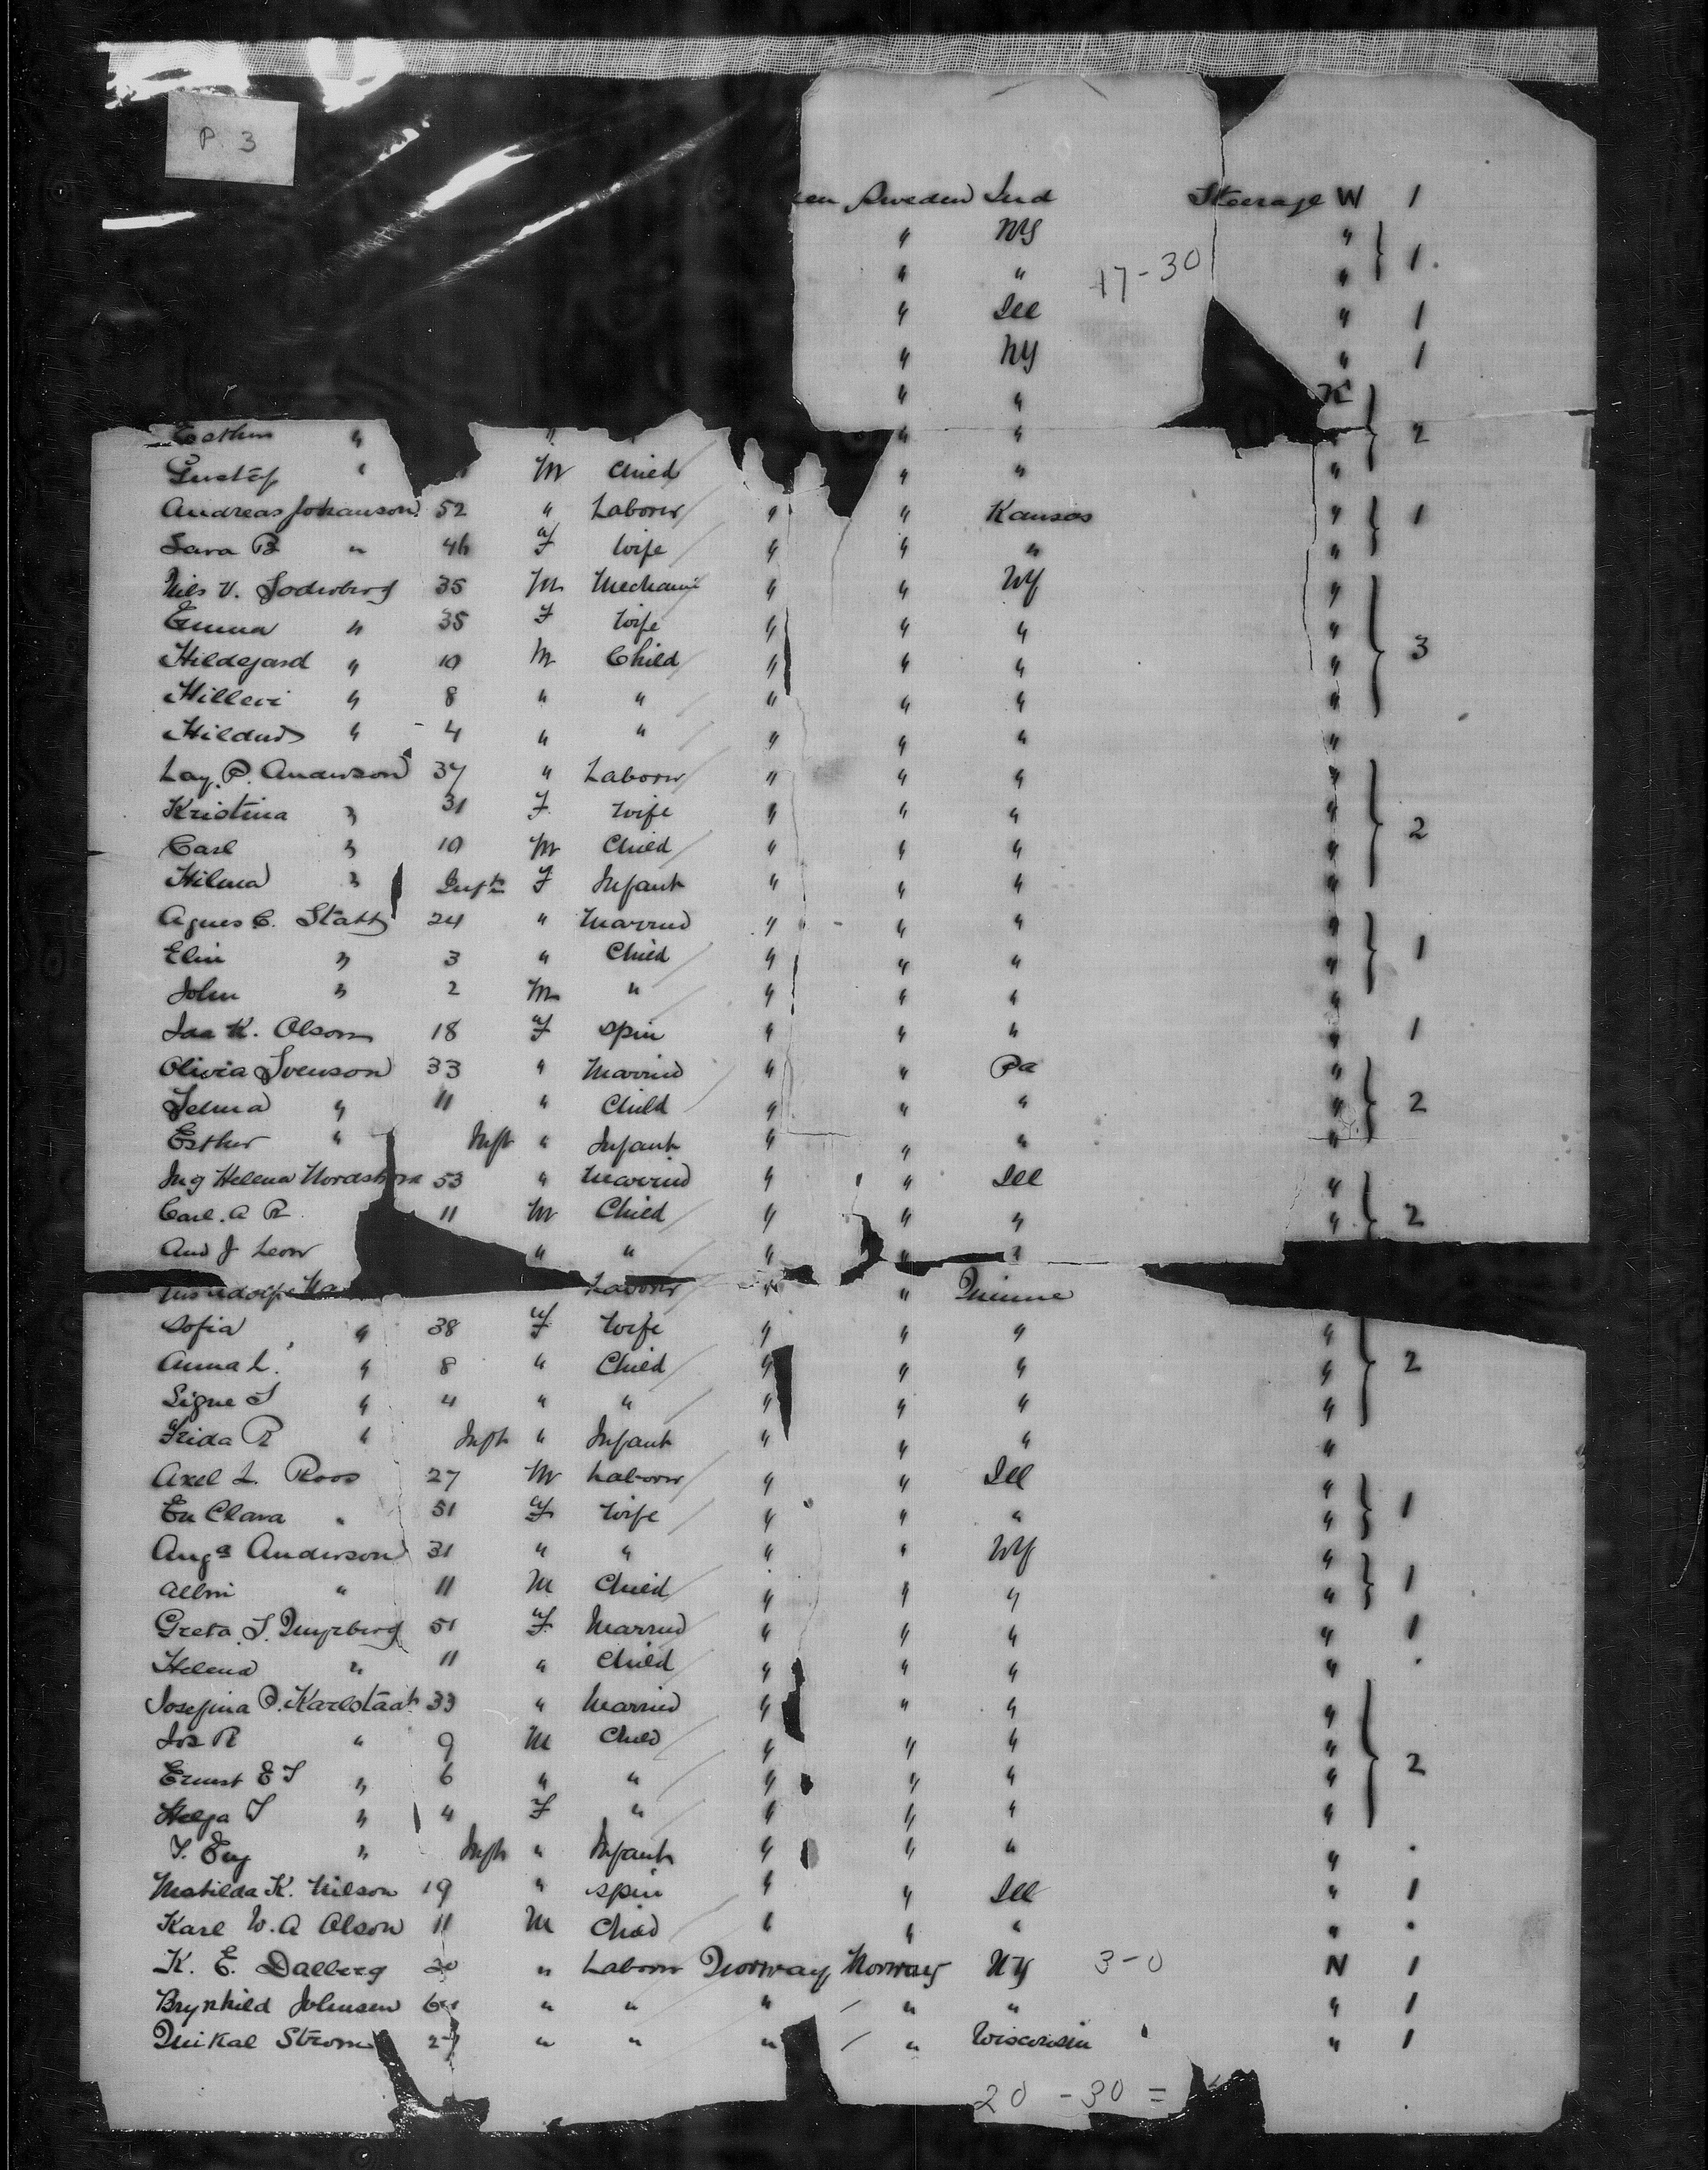 P. 3
Sweden Ind Steerage W 1
" NY "
" " 17-30 " 1.
" Ill " 1
" NY " 1
" " K
" " " " " 2
Gustaf " M Child " " "
Andreas Johanson 52 " Laborer " " Kansas " 1
Sara B " 46 F Wife " " " "
Nils V. Soderberg 35 M Mechanic " " NY "
Emma " 35 F Wife " " " "
Hildegard " 10 M Child " " " " 3
Hillevi " 8 " " " " " "
" 4 " " " " " "
P. Anderson 37 " Laborer " " " "
Kristina " 31 F Wife " " " "
Carl " 10 M Child " " " " 2
Hilma " Inft F Infant " " " "
Agnes C. 24 " Married " " " "
Elin " 3 " Child " " " " 1
John " 2 M " " " " "
K. Olson 18 F Spin " " " " 1
Olivia Svenson 33 " Married " " Pa "
Selma " 11 " Child " " " " 2
Esther " Inft " Infant " " " "
Helena 53 " Married " " Ill "
Carl. A R 11 M Child " " " " 2
And J " " " " "
Laborer " "
Sofia " 38 F Wife " " " "
Anna L. " 8 " Child " " " " 2
Signe S " 4 " " " " " "
Frida R " Inft " Infant " " " "
Axel L. Roos 27 M Laborer " " Ill "
Clara " 51 F Wife " " " " 1
Anderson 31 " " " " NY "
" 11 M Child " " " " 1
Greta S. 51 F Married " " " " 1
Helena " 11 " Child " " " "
Josefina P. Karlstadt 33 " Married " " " "
R " 9 M Child " " " "
Ernst E S " 6 " " " " " " 2
Helga S " 4 F " " " " "
" Inft " Infant " " " "
Matilda K. Nilson 19 " Spin " " Ill " 1
Karl W. A Olson 11 M Child " " " "
K. E. Dalberg 20 " Laborer Norway Norway NY 3-0 N 1
Brynhild Johnsen " " " " " " 1
Mikal Strom 27 " " " " Wisconsin " 1
20 - 30 =